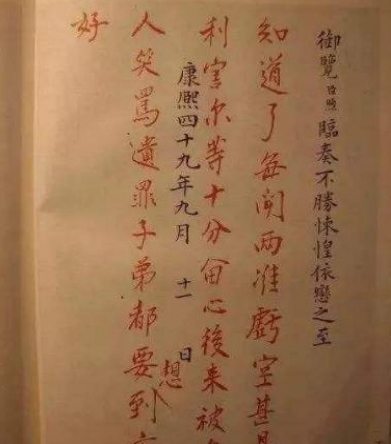 御覽臣煦臨奏不勝悚惶依戀之至
知道了每聞兩淮虧空甚是
利害尔等十分留心後來被
康熙四十九年九月 十一 日
人笑罵遺罪子弟都要想到
好